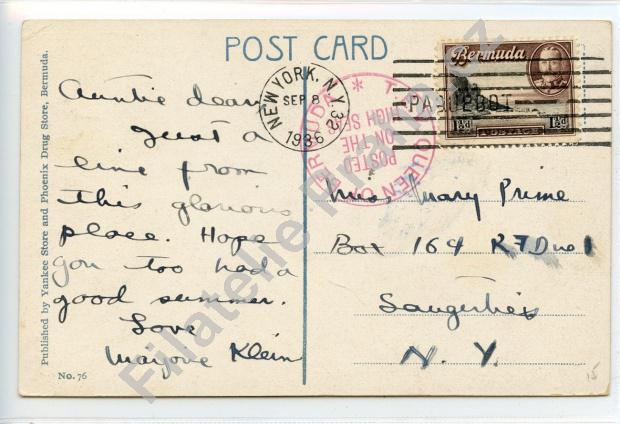 POST CARD
Auntie dear
Just a
line from
this glorious
place. Hope
you too had a
good summer.
Love
Marjorie Klein
Published by Yankee Store and Phoenix Drug Store, Bermuda.
No. 76
NEW YORK, N.Y.
SEP 8
1936
T.S. QUEEN OF BERMUDA
POSTED
ON THE
HIGH SEAS
PAQUEBOT
Bermuda
POSTAGE
1½d
Miss Mary Prime
Box 164 R.F.D. no 1
Saugerties
N. Y.
15
Filatelie